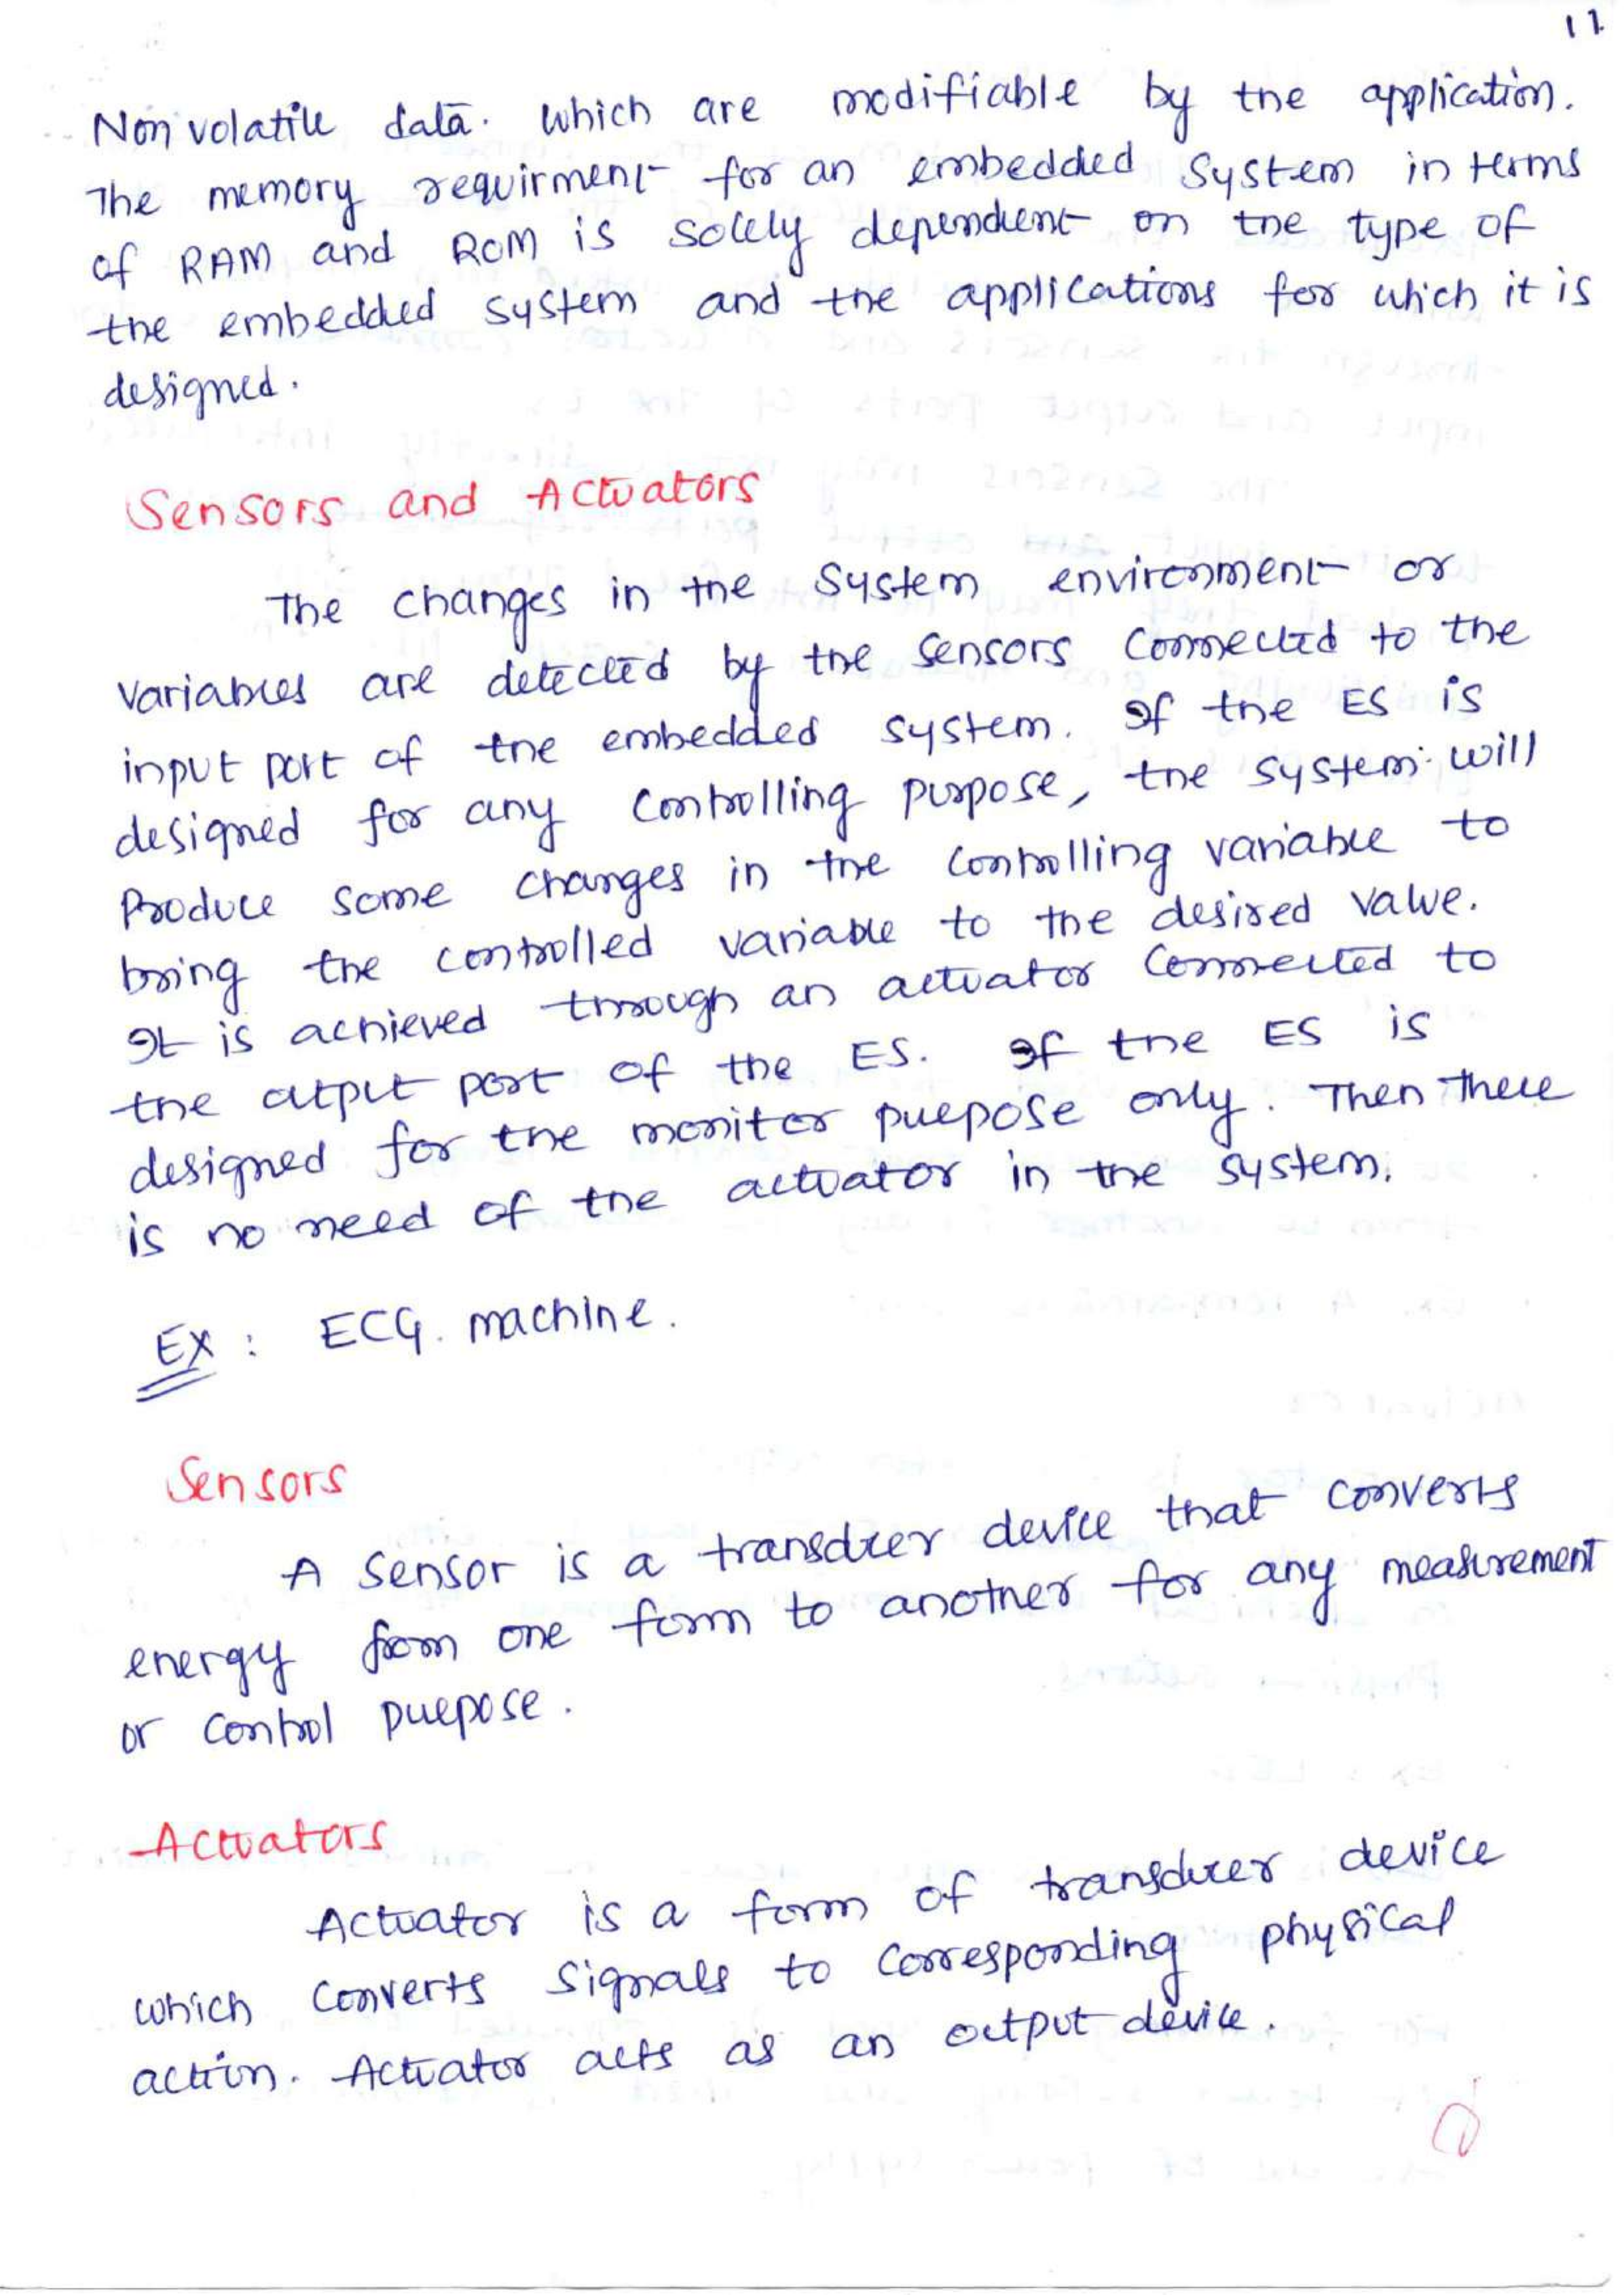 11
Non volatile data. which are modifiable by the application.
The memory requirment for an embedded System in terms
of RAM and ROM is solely dependent on the type of
the embedded system and the applications for which it is
designed.
Sensors and Actuators
The changes in the System environment or
variables are detected by the sensors connected to the
input port of the embedded system. If the ES is
designed for any controlling purpose, the system will
Produce some changes in the controlling variable to
bring the controlled variable to the desired value.
It is achieved through an actuator connected to
the output port of the ES. If the ES is
designed for the monitor purpose only. Then there
is no need of the actuator in the system.
Ex : ECG. machine.
Sensors
A sensor is a transducer device that converts
energy from one form to another for any measurement
or control purpose.
Actuators
Actuator is a form of transducer device
which converts signals to corresponding physical
action. Actuator acts as an output device.